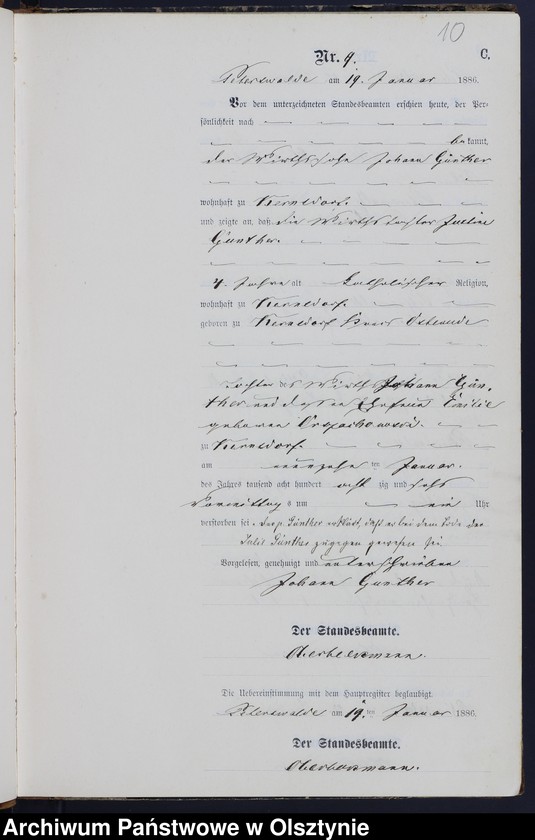 10
C.
Nr. 9.
Peterswalde am 19. Januar 1886.
Vor dem unterzeichneten Standesbeamten erschien heute, der Per-
sönlichkeit nach
bekannt,
der Wirthssohn Johann Günther
wohnhaft zu Kernsdorf.
und zeigte an, daß die Wirthstochter Julie
Günther.
4. Jahre alt Katholischer Religion,
wohnhaft zu Kernsdorf.
geboren zu Kernsdorf Kreis Osterode
Tochter des Wirths Johann Gün-
ther und dessen Ehefrau
geborenen
zu Kernsdorf.
am neunzehn ten Januar.
des Jahres tausend acht hundert acht zig und sechs
Vormittag s um ein Uhr
verstorben sei. Der p. Günther erklärt, daß er bei dem Tode der
Julie Günther zugegen gewesen sei
Vorgelesen, genehmigt und unterschrieben
Johann Günther
Der Standesbeamte.
Die Uebereinstimmung mit dem Hauptregister beglaubigt.
Peterswalde am 19. ten Januar 1886.
Der Standesbeamte.
Archiwum Państwowe w Olsztynie